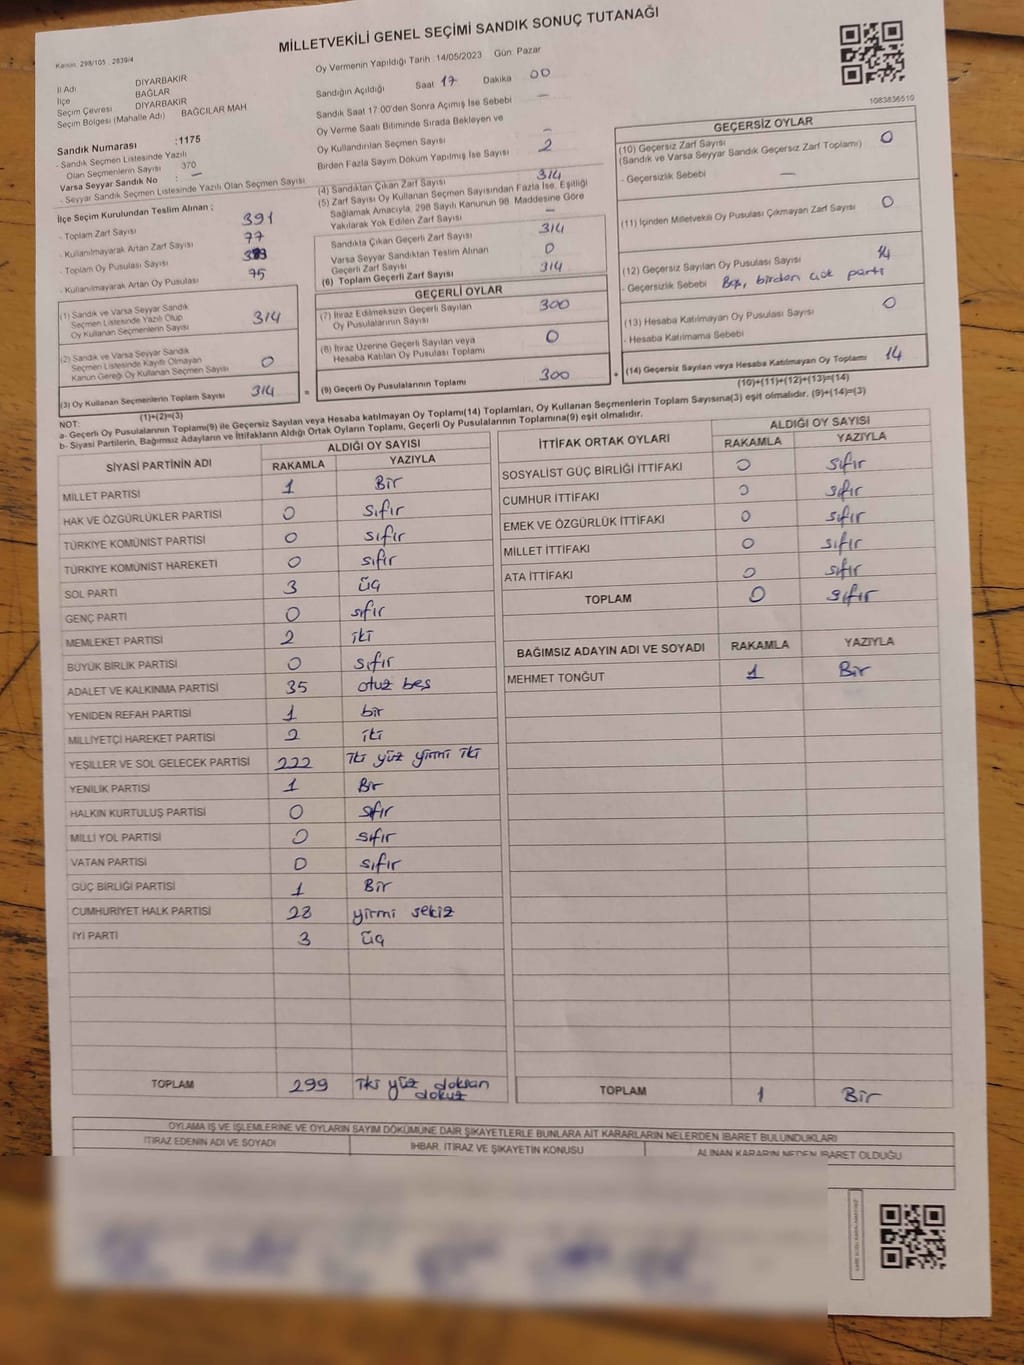 MİLLETVEKİLİ GENEL SEÇİMİ SANDIK SONUÇ TUTANAĞI
Kanun: 298/105 , 2839/4
Oy Vermenin Yapıldığı Tarih :14/05/2023 Gün: Pazar
İl Adı DİYARBAKIR
İlçe BAĞLAR
Seçim Çevresi DİYARBAKIR
Seçim Bölgesi (Mahalle Adı) BAĞCILAR MAH
Sandık Numarası :1175
- Sandık Seçmen Listesinde Yazılı
Olan Seçmenlerin Sayısı 370
Varsa Seyyar Sandık No : –
- Seyyar Sandık Seçmen Listesinde Yazılı Olan Seçmen Sayısı
Sandığın Açıldığı Saat 17 Dakika 00
Sandık Saat 17:00'den Sonra Açılmış İse Sebebi –
Oy Verme Saati Bitiminde Sırada Bekleyen ve
Oy Kullandırılan Seçmen Sayısı –
Birden Fazla Sayım Döküm Yapılmış İse Sayısı 2
1083836510
İlçe Seçim Kurulundan Teslim Alınan ;
- Toplam Zarf Sayısı 391
- Kullanılmayarak Artan Zarf Sayısı 77
- Toplam Oy Pusulası Sayısı
- Kullanılmayarak Artan Oy Pusulası 75
(1) Sandık ve Varsa Seyyar Sandık
Seçmen Listesinde Yazılı Olup
Oy Kullanan Seçmenlerin Sayısı 314
(2) Sandık ve Varsa Seyyar Sandık
Seçmen Listesinde Kayıtlı Olmayan
Kanun Gereği Oy Kullanan Seçmen Sayısı 0
(3) Oy Kullanan Seçmenlerin Toplam Sayısı 314
(1)+(2)=(3)
(4) Sandıktan Çıkan Zarf Sayısı 314
(5) Zarf Sayısı Oy Kullanan Seçmen Sayısından Fazla İse, Eşitliği
Sağlamak Amacıyla, 298 Sayılı Kanunun 98. Maddesine Göre
Yakılarak Yok Edilen Zarf Sayısı –
Sandıkta Çıkan Geçerli Zarf Sayısı 314
Varsa Seyyar Sandıktan Teslim Alınan
Geçerli Zarf Sayısı 0
(6) Toplam Geçerli Zarf Sayısı 314
GEÇERLİ OYLAR
(7) İtiraz Edilmeksizin Geçerli Sayılan
Oy Pusulalarının Sayısı 300
(8) İtiraz Üzerine Geçerli Sayılan veya
Hesaba Katılan Oy Pusulası Toplamı 0
= (9) Geçerli Oy Pusulalarının Toplamı 300
GEÇERSİZ OYLAR
(10) Geçersiz Zarf Sayısı 0
(Sandık ve Varsa Seyyar Sandık Geçersiz Zarf Toplamı)
- Geçersizlik Sebebi –
(11) İçinden Milletvekili Oy Pusulası Çıkmayan Zarf Sayısı 0
(12) Geçersiz Sayılan Oy Pusulası Sayısı 14
- Geçersizlik Sebebi Boş, birden çok parti
(13) Hesaba Katılmayan Oy Pusulası Sayısı 0
- Hesaba Katılmama Sebebi
+ (14) Geçersiz Sayılan veya Hesaba Katılmayan Oy Toplamı 14
(10)+(11)+(12)+(13)=(14)
NOT:
a- Geçerli Oy Pusulalarının Toplamı(9) ile Geçersiz Sayılan veya Hesaba katılmayan Oy Toplamı(14) Toplamları, Oy Kullanan Seçmenlerin Toplam Sayısına(3) eşit olmalıdır. (9)+(14)=(3)
b- Siyasi Partilerin, Bağımsız Adayların ve İttifakların Aldığı Ortak Oyların Toplamı, Geçerli Oy Pusulalarının Toplamına(9) eşit olmalıdır.
SİYASİ PARTİNİN ADI ALDIĞI OY SAYISI
RAKAMLA YAZIYLA
MİLLET PARTİSİ 1 Bir
HAK VE ÖZGÜRLÜKLER PARTİSİ 0 sıfır
TÜRKİYE KOMÜNİST PARTİSİ 0 sıfır
TÜRKİYE KOMÜNİST HAREKETİ 0 sıfır
SOL PARTİ 3 üç
GENÇ PARTİ 0 sıfır
MEMLEKET PARTİSİ 2 iki
BÜYÜK BİRLİK PARTİSİ 0 sıfır
ADALET VE KALKINMA PARTİSİ 35 otuz beş
YENİDEN REFAH PARTİSİ 1 bir
MİLLİYETÇİ HAREKET PARTİSİ 2 iki
YEŞİLLER VE SOL GELECEK PARTİSİ 222 iki yüz yirmi iki
YENİLİK PARTİSİ 1 Bir
HALKIN KURTULUŞ PARTİSİ 0 sıfır
MİLLİ YOL PARTİSİ 0 sıfır
VATAN PARTİSİ 0 sıfır
GÜÇ BİRLİĞİ PARTİSİ 1 Bir
CUMHURİYET HALK PARTİSİ 28 yirmi sekiz
İYİ PARTİ 3 üç
TOPLAM 299 iki yüz doksan
dokuz
İTTİFAK ORTAK OYLARI ALDIĞI OY SAYISI
RAKAMLA YAZIYLA
SOSYALİST GÜÇ BİRLİĞİ İTTİFAKI 0 sıfır
CUMHUR İTTİFAKI 0 sıfır
EMEK VE ÖZGÜRLÜK İTTİFAKI 0 sıfır
MİLLET İTTİFAKI 0 sıfır
ATA İTTİFAKI 0 sıfır
TOPLAM 0 sıfır
BAĞIMSIZ ADAYIN ADI VE SOYADI RAKAMLA YAZIYLA
MEHMET TONĞUT 1 Bir
TOPLAM 1 Bir
OYLAMA İŞ VE İŞLEMLERİNE VE OYLARIN SAYIM DÖKÜMÜNE DAİR ŞİKAYETLERLE BUNLARA AİT KARARLARIN NELERDEN İBARET BULUNDUKLARI
İTİRAZ EDENİN ADI VE SOYADI İHBAR, İTİRAZ VE ŞİKAYETİN KONUSU ALINAN KARARIN NEDEN İBARET OLDUĞU